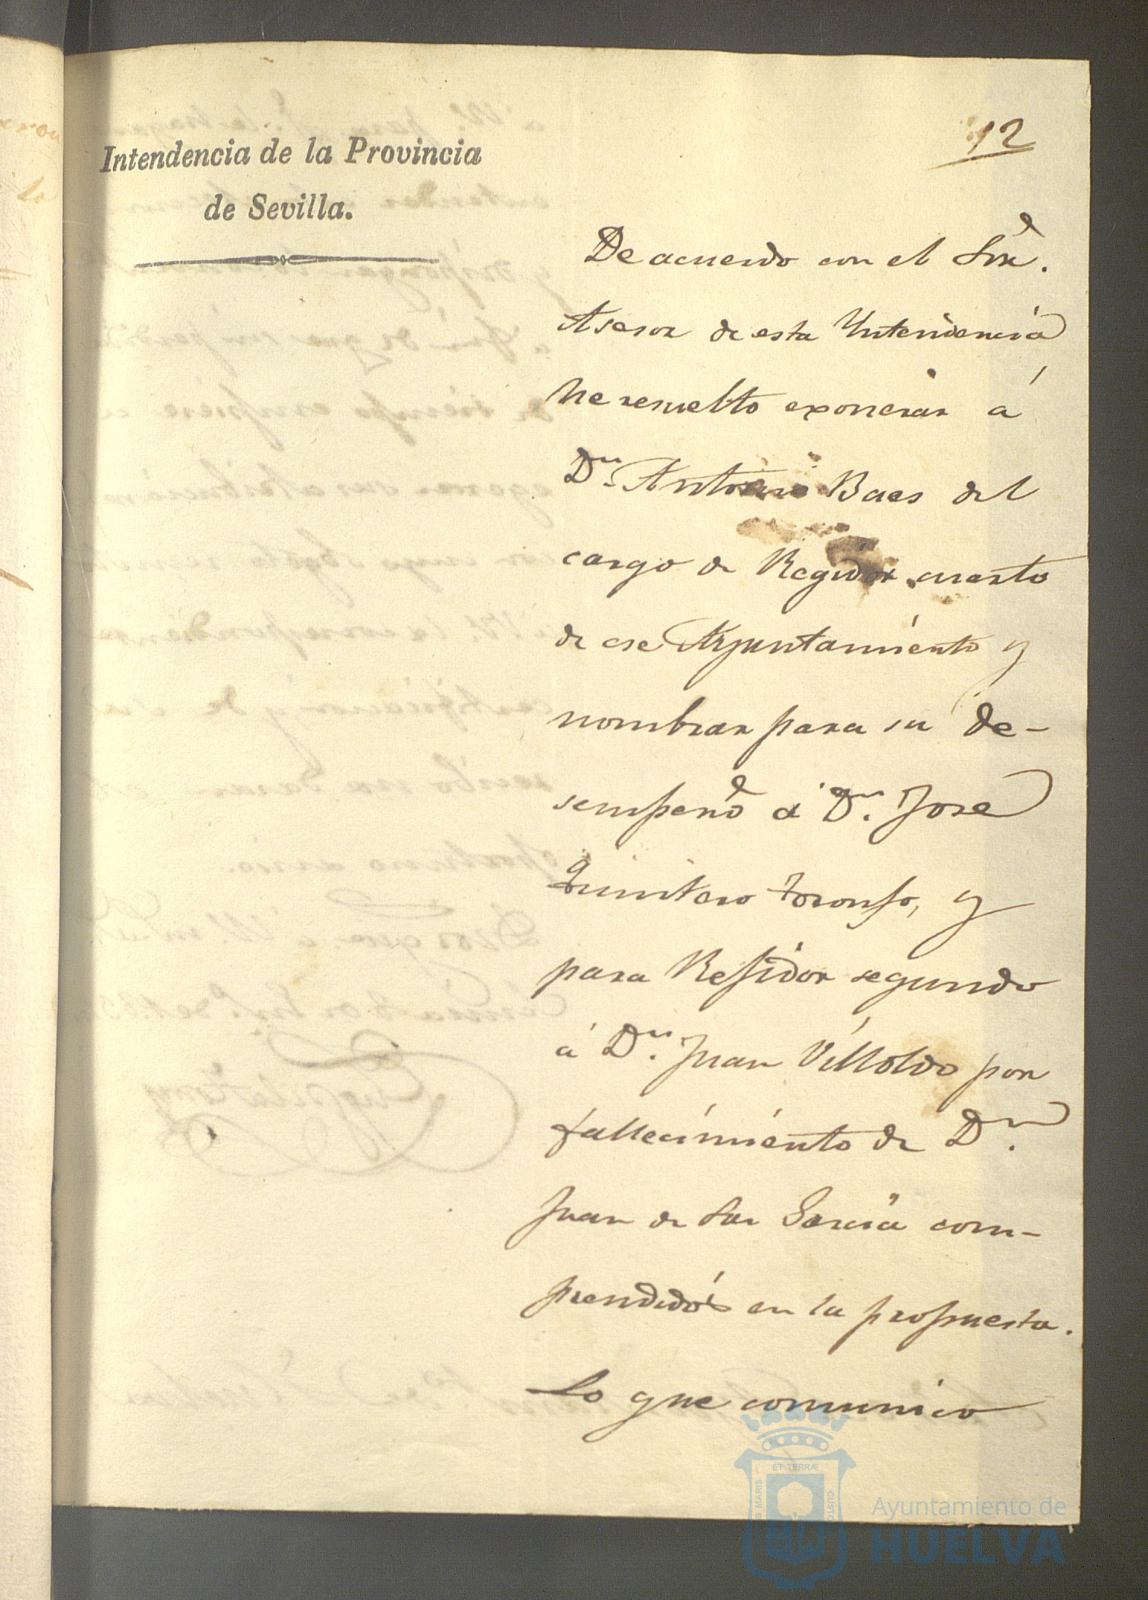 12
Intendencia de la Provincia
de Sevilla.
De acuerdo con el Sor.
Asesor de esta Yntendencia
he resuelto exonerar á
Dn. Antonio Baes del
cargo de Regidor cuarto
de ese Ayuntamiento y
nombrar para su de-
sempeño á Dn. Jose
Quintero, y
para Residor segundo
á Dn. Juan Villoldo por
fallecimiento de Dn.
Juan de Garcia com-
prendidos en la propuesta.
Lo que comunico
ET TERRÆ
MARIS
CUSTOS
Ayuntamiento de
HUELVA